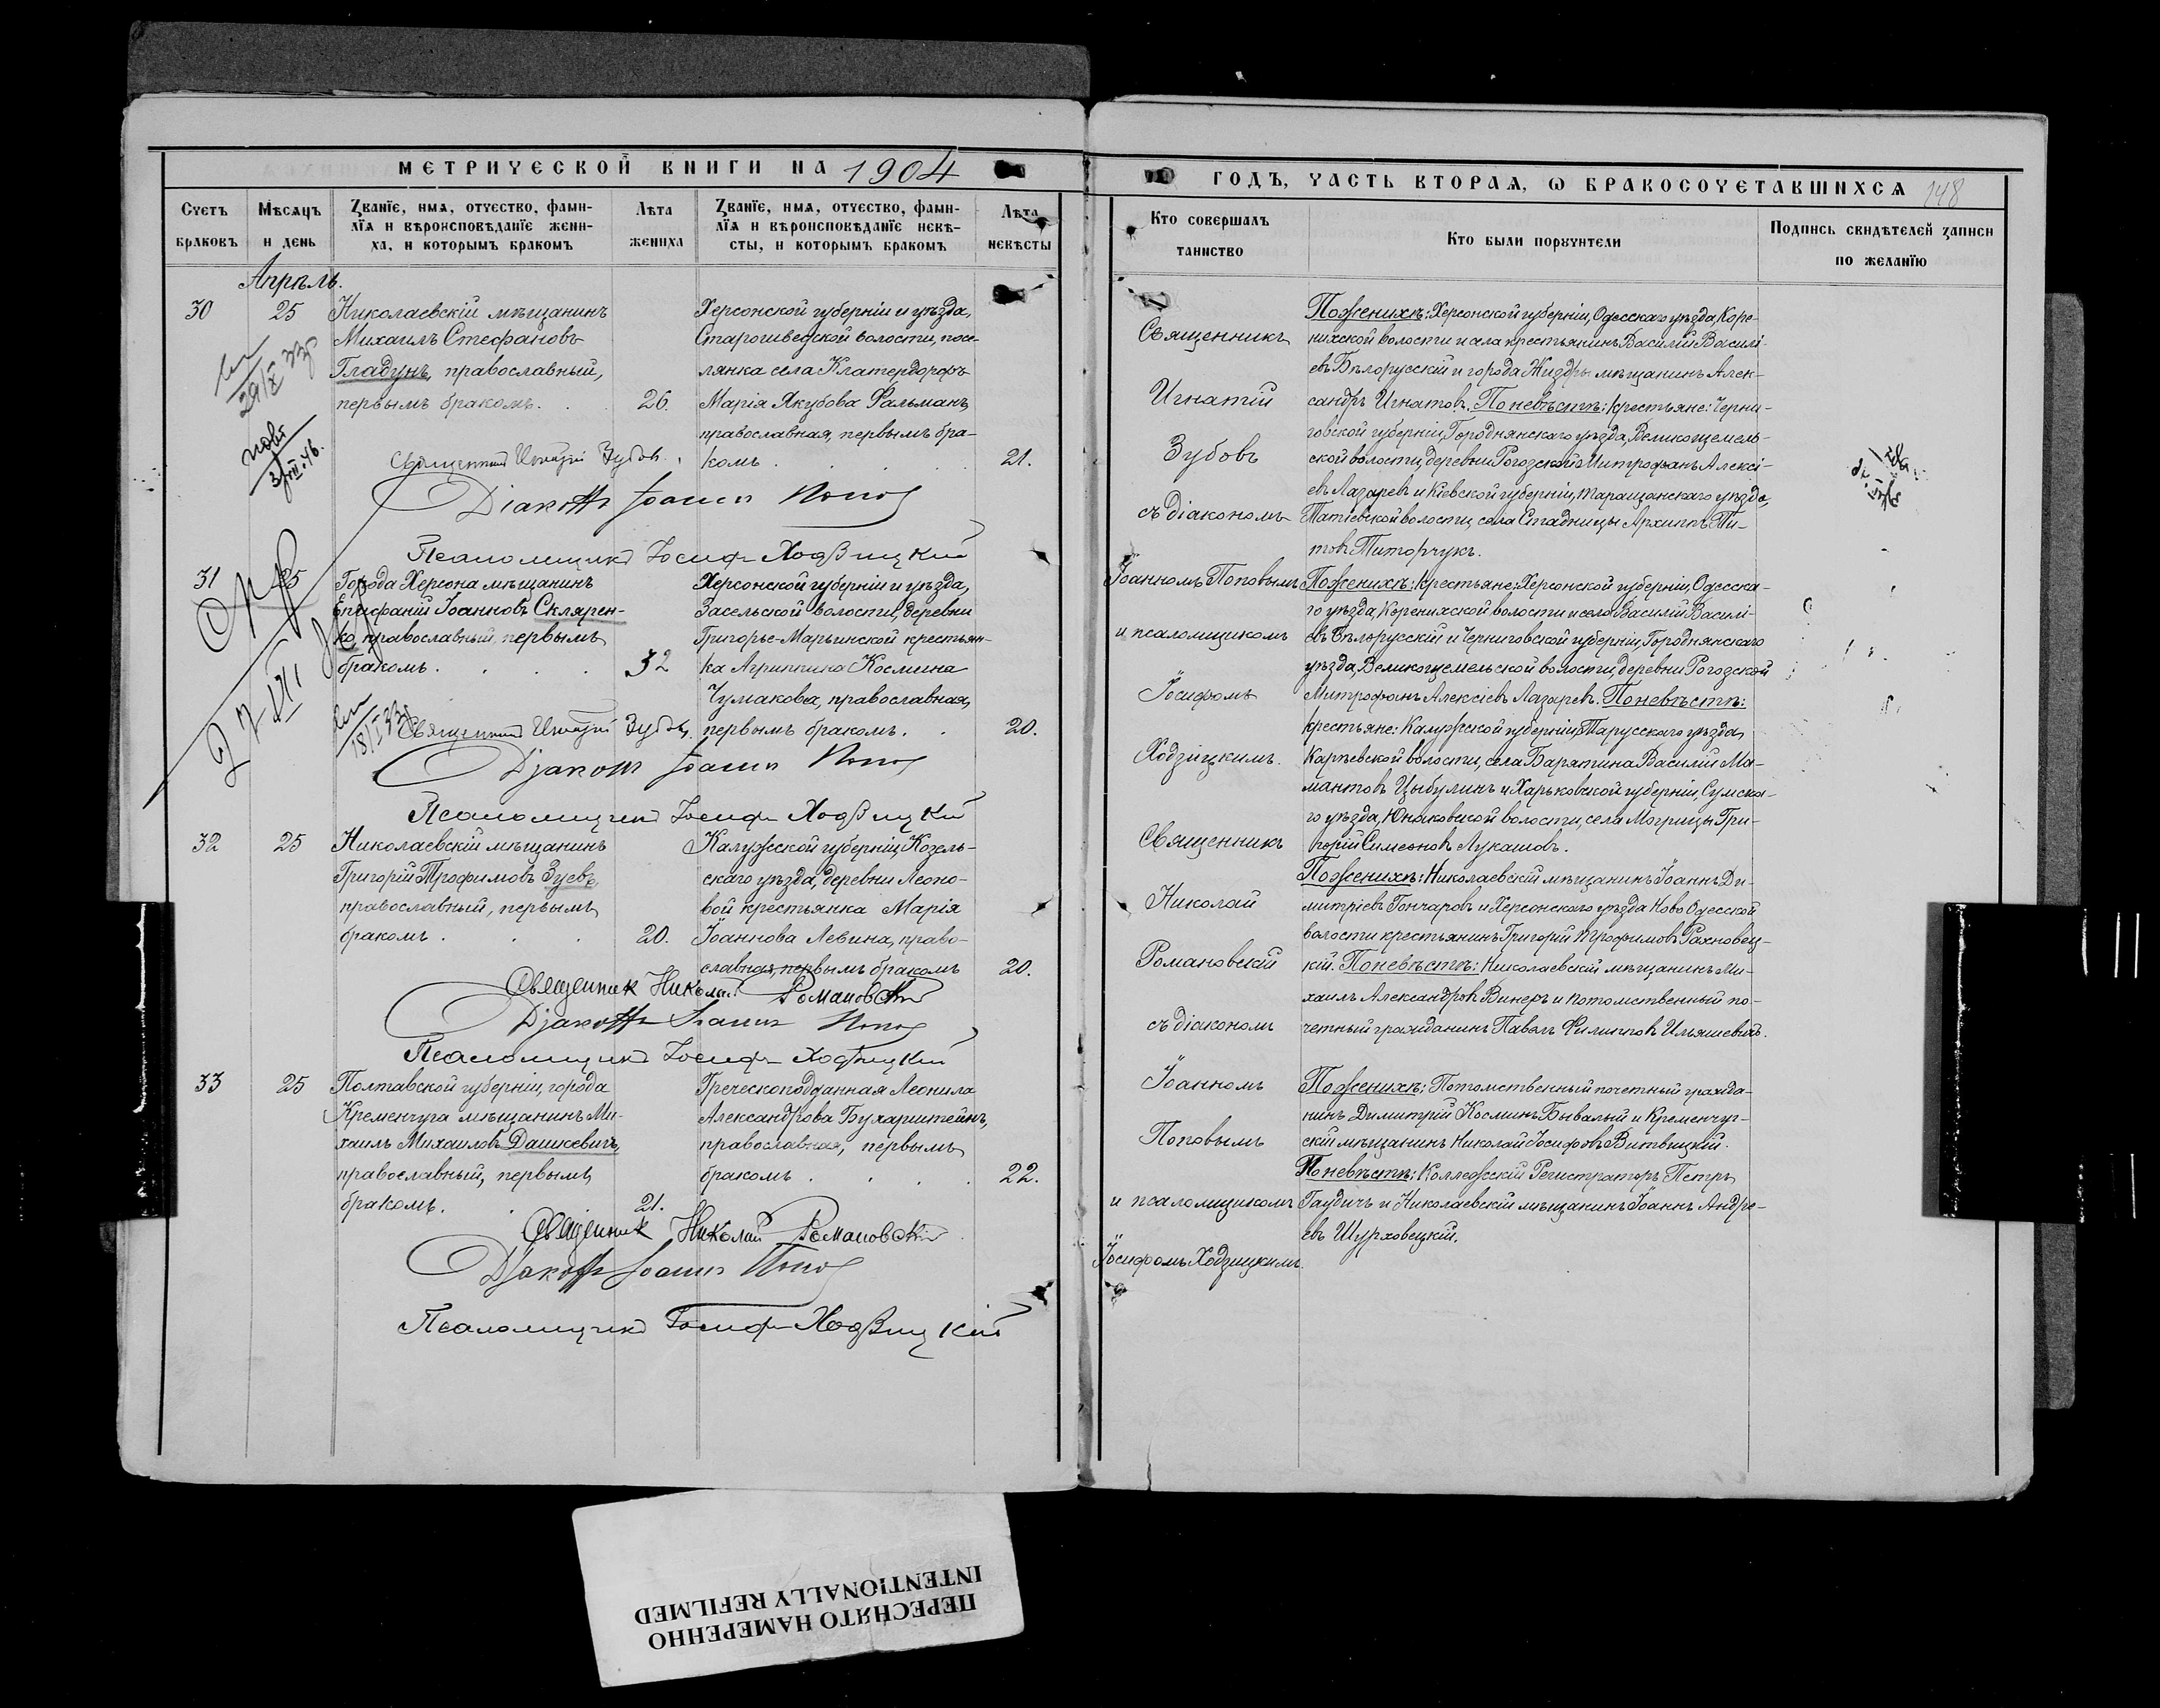 МЕТРИЧЕСКОЙ КНИГИ НА 1904
Счетъ браковъ
Мѣсяцъ и день
Званїе, имя, отчество, фамилїя и вѣроисповѣданїе жениха, и которымъ бракомъ
Лѣта жениха
Званїе, имя, отчество, фамилїя и вѣроисповѣданїе невѣсты, и которымъ бракомъ
Лѣта невѣсты
Апрѣль.
30
25
Николаевскій мѣщанинъ
Михаилъ Стефановъ
Гладунъ, православный,
первымъ бракомъ.
26.
Херсонской губерніи и уѣзда,
Старошведской волости, посе-
лянка села Клатердорфъ
Марія Якубова Фальманъ,
православная, первымъ бра-
комъ
21.
Священникъ Игнатій Зубовъ.
Діаконъ Іоаннъ Поповъ
Псаломщикъ Іосифъ Ходзицкій
31
25
Города Херсона мѣщанинъ
Епифаній Іоанновъ Склярен-
ко, православный, первымъ
бракомъ.
32
Херсонской губерніи и уѣзда,
Засельской волости, деревни
Григорье-Марьинской крестьян-
ка Агриппина Косьмина
Чумакова, православная,
первымъ бракомъ.
20.
Священникъ Игнатій Зубовъ.
Діаконъ Іоаннъ Поповъ
Псаломщикъ Іосифъ Ходзицкій
32
25
Николаевскій мѣщанинъ
Григорій Трофимовъ Зуевъ,
православный, первымъ
бракомъ.
20.
Калужской губерніи, Козель-
скаго уѣзда, деревни Леоно-
вой крестьянка Марія
Іоаннова Левина, право-
славная, первымъ бракомъ
20.
Священникъ Николай Романовскій
Діаконъ Іоаннъ Поповъ
Псаломщикъ Іосифъ Ходзицкій
33
25
Полтавской губерніи, города
Кременчуга мѣщанинъ Ми-
хаилъ Михаиловъ Дашкевичъ,
православный, первымъ
бракомъ.
21.
Греческоподданная Леонила
Александрова Бухарштейнъ,
православная, первымъ
бракомъ
22.
Священникъ Николай Романовскій
Діаконъ Іоаннъ Поповъ
Псаломщикъ Іосифъ Ходзицкій
ГОДЪ, ЧАСТЬ ВТОРАЯ, Ѡ БРАКОСОЧЕТАВШИХСЯ
148
Кто совершалъ таинство
Кто были поручители
Подпись свидѣтелей записи по желанїю
Священникъ
Игнатій
Зубовъ
съ діакономъ
Іоанномъ Поповымъ
и псаломщикомъ
Іосифомъ
Ходзицкимъ.
Священникъ
Николай
Романовскій
съ діакономъ
Іоанномъ
Поповымъ
и псаломщикомъ
Іосифомъ Ходзицкимъ.
По женихѣ: Херсонской губерніи, Одесскаго уѣзда, Коре-
нихской волости и села крестьянинъ Василій Василі-
евъ Бѣлорусскій и города Жиздры мѣщанинъ Алек-
сандръ Игнатовъ. По невѣстѣ: крестьяне: Черни-
говской губерніи, Городнянскаго уѣзда, Великощемель-
ской волости, деревни Рогозской Митрофанъ Алексі-
евъ Лазаревъ и Кіевской губерніи, Таращанскаго уѣзда,
Татіевской волости, села Стадницы Архиппъ Ти-
товъ Титорчукъ.
По женихѣ: крестьяне: Херсонской губерніи, Одесска-
го уѣзда, Коренихской волости и села Василій Василі-
евъ Бѣлорусскій и Черниговской губерніи, Городнянскаго
уѣзда, Великощемельской волости, деревни Рогозской
Митрофанъ Алексіевъ Лазаревъ. По невѣстѣ:
крестьяне: Калужской губерніи, Тарусскаго уѣзда,
Карѣевской волости, села Барятина Василій Ма-
мантовъ Цыбулинъ и Харьковской губерніи, Сумска-
го уѣзда, Юнаковской волости, села Могрицы Гри-
горій Симеоновъ Лукашовъ.
По женихѣ: Николаевскій мѣщанинъ Іоаннъ Ди-
митріевъ Гончаровъ и Херсонскаго уѣзда Ново Одесской
волости крестьянинъ Григорій Трофимовъ Рахновец-
кій. По невѣстѣ: Николаевскій мѣщанинъ Ми-
хаилъ Александровъ Винеръ и потомственный по-
четный гражданинъ Павелъ Филипповъ Ильяшевичъ.
По женихѣ: Потомственный почетный гражда-
нинъ Димитрій Косминъ Бывалый и Кременчуг-
скій мѣщанинъ Николай Іосифовъ Витвицкій.
По невѣстѣ: Коллежскій Регистраторъ Петръ
Гаудичъ и Николаевскій мѣщанинъ Іоаннъ Андре-
евъ Шурховецкій.
ПЕРЕСНЯТО НАМЕРЕННО
INTENTIONALLY REFILMED